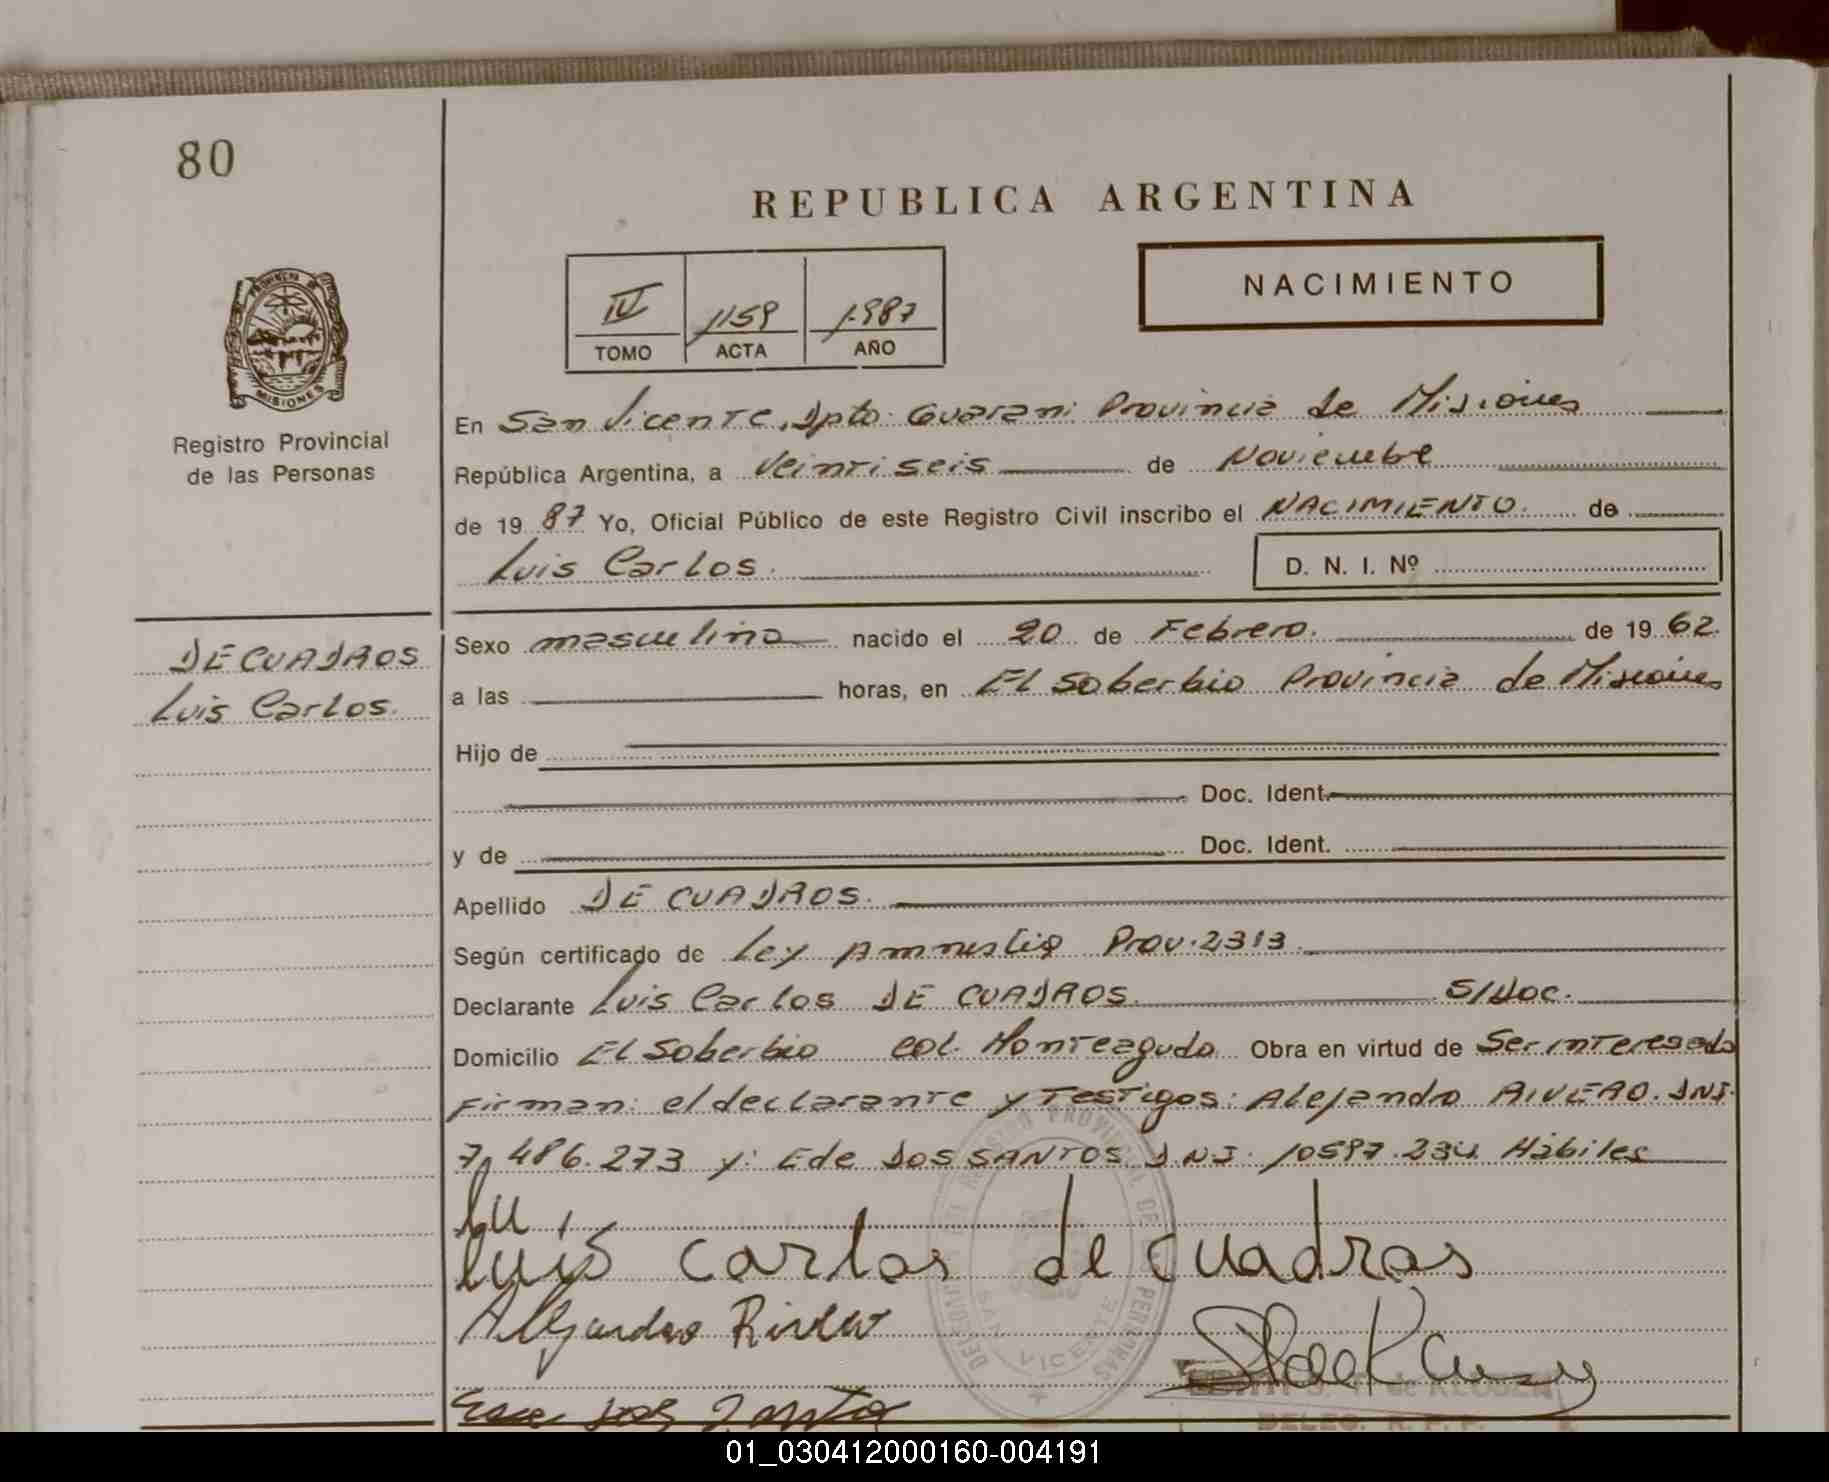 80
REPUBLICA ARGENTINA
IV 1159 1987
TOMO ACTA AÑO
NACIMIENTO
PROVINCIA DE
MISIONES
Registro Provincial
de las Personas
En San Vicente, Dpto. Guarani Provincia de Misiones
República Argentina, a Veintiseis de Noviembre
de 19 87 Yo, Oficial Público de este Registro Civil inscribo el NACIMIENTO. de
Luis Carlos. D. N. I. Nº
DE CUADROS
Luis Carlos.
Sexo masculino nacido el 20 de Febrero. de 19 62.
a las horas, en El Soberbio Provincia de Misiones
Hijo de
Doc. Ident.
y de Doc. Ident.
Apellido DE CUADROS.
Según certificado de Ley Amnistia Prov. 2313.
Declarante Luis Carlos DE CUADROS. S/Doc.
Domicilio El Soberbio Col. Monteagudo Obra en virtud de Ser interesado
Firman: el declarante y Testigos: Alejandro RIVERO. DNI.
7.486.273 y: Ede DOS SANTOS D.N.I. 10597.234 Hábiles
Lu
Luis Carlos de Cuadros
Alejandro Rivero
SAN VICENTE
de KLODEN
DELEG. R. P. P.
01_030412000160-004191